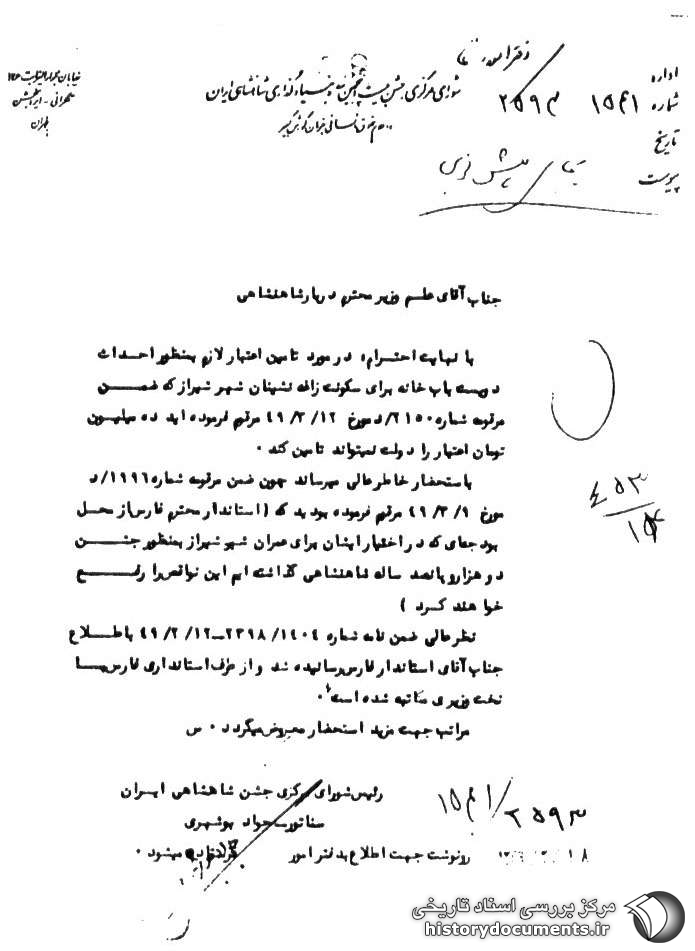 اداره دفتر امور
شماره ۱۵۴۱ ۲۵۹۳
تاریخ
پیوست
شورای مرکزی جشن بیست و پنجمین سده بنیانگذاری شاهنشاهی ایران
تهران
جناب آقای علم وزیر محترم دربار شاهنشاهی
با نهایت احترام؛ در مورد تامین اعتبار لازم بمنظور احداث
دویست باب خانه برای سکونت زاغه نشینان شهر شیراز که ضمن
مرقومه شماره ۲۱۵۰/د مورخ ۴۹/۳/۱۲ مرقوم فرموده اید ده میلیون
تومان اعتبار را دولت نمیتواند تامین کند .
باستحضار خاطر عالی میرساند چون ضمن مرقومه شماره ۱۹۹۶/د
مورخ ۴۹/۳/۹ مرقوم فرموده بودید که (استاندار محترم فارس از محل
بودجه‌ای که در اختیار ایشان برای عمران شهر شیراز بمنظور جشن
دو هزار و پانصد ساله شاهنشاهی گذاشته ایم این نواقص را رفع
خواهند کرد )
نظر عالی ضمن نامه شماره ۲۳۹۸/۱۴۰۴ــ۴۹/۳/۱۲ باطلاع
جناب آقای استاندار فارس رسانیده شد و از طرف استانداری فارس با
نخست وزیری مکاتبه شده است .
مراتب جهت مزید استحضار معروض میگردد . س
۴۵۳
رئیس شورای مرکزی جشن شاهنشاهی ایران
سناتور جواد بوشهری
۱۵۴۱/۲۵۹۳
رونوشت جهت اطلاع بدفتر امور
میشود .
مرکز بررسی اسناد تاریخی
historydocuments.ir